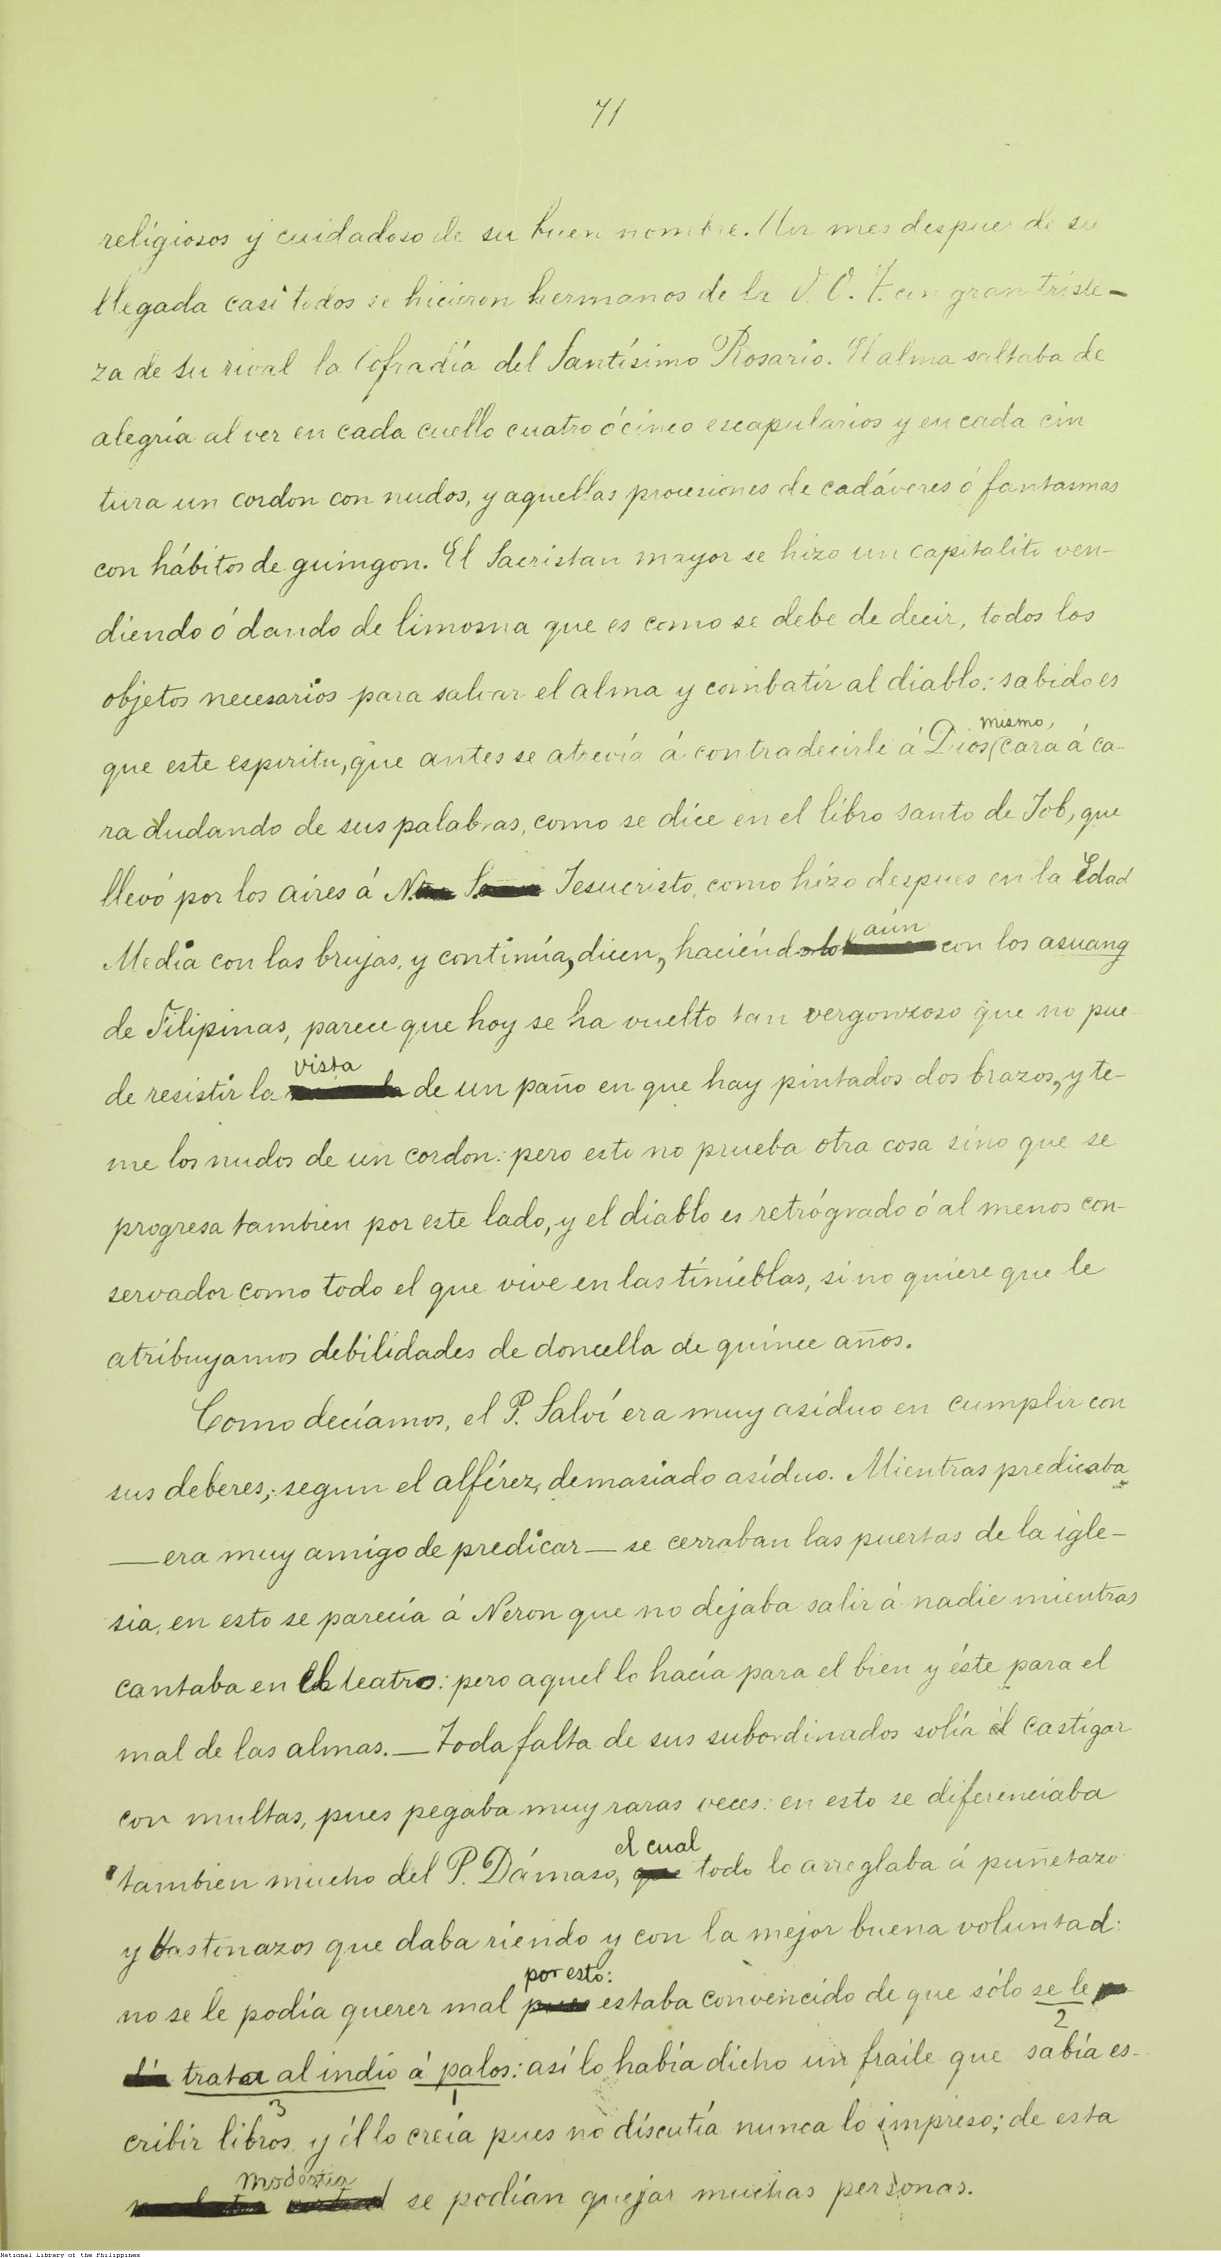 71
religiosos y cuidadoso de su buen nombre. Un mes despues de su
llegada casi todos se hicieron hermanos de la V. O. T. con gran triste-
za de su rival la Cofradía del Santísimo Rosario. El alma saltaba de
alegría al ver en cada cuello cuatro ó cinco escapularios y en cada cin
tura un cordon con nudos, y aquellas procesiones de cadáveres ó fantasmas
con hábitos de guingon. El Sacristan mayor se hizo un capitalito ven-
diendo ó dando de limosna que es como se debe de decir, todos los
objetos necesarios para salvar el alma y combatir al diablo: sabido es
mismo,
que este espiritu, que antes se atrevía á contradecirle á Dios cara á ca-
ra dudando de sus palabras, como se dice en el libro santo de Job, que
llevó por los aires á N. S. Jesucristo, como hizo despues en la Edad
aún
Media con las brujas, y continúa, dicen, haciéndolo con los asuang
de Filipinas, parece que hoy se ha vuelto tan vergonzoso que no pue
vista
de resistir la de un paño en que hay pintados dos brazos, y te-
me los nudos de un cordon: pero esto no prueba otra cosa sino que se
progresa tambien por este lado, y el diablo es retrógrado ó al menos con-
servador como todo el que vive en las tinieblas, si no quiere que le
atribuyamos debilidades de doncella de quince años.
Como decíamos, el P. Salví era muy asíduo en cumplir con
sus deberes; segun el alférez, demasiado asíduo. Mientras predicaba
— era muy amigo de predicar — se cerraban las puertas de la igle-
sia, en esto se parecía á Neron que no dejaba salir á nadie mientras
cantaba en el teatro: pero aquel lo hacía para el bien y éste para el
mal de las almas. — Toda falta de sus subordinados solía él castigar
con multas, pues pegaba muy raras veces: en esto se diferenciaba
el cual
tambien mucho del P. Dámaso, que todo lo arreglaba á puñetazo
y bastonazos que daba riendo y con la mejor buena voluntad:
por esto:
no se le podía querer mal pues estaba convencido de que sólo se le
2
trata al indio á palos: así lo había dicho un fraile que sabía es-
3 1
cribir libros y él lo creía pues no discutía nunca lo impreso; de esta
modestia
se podían quejar muchas personas.
National Library of the Philippines